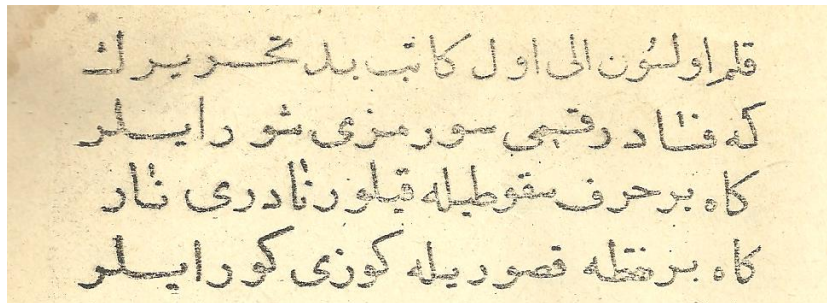 قلم اولسون الی اول کاتب بد تحریرك
که فساد رقمی سورمزی شور ایلر
کاه بر حرف سقوطیله قیلور نادری نار
کاه بر نقطه قصوریله کوزی کور ایلر